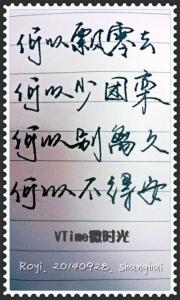 何以飘零去
何以少团栾
何以别离久
何以不得安
VTime微时光
Royi, 20140928, shanghai